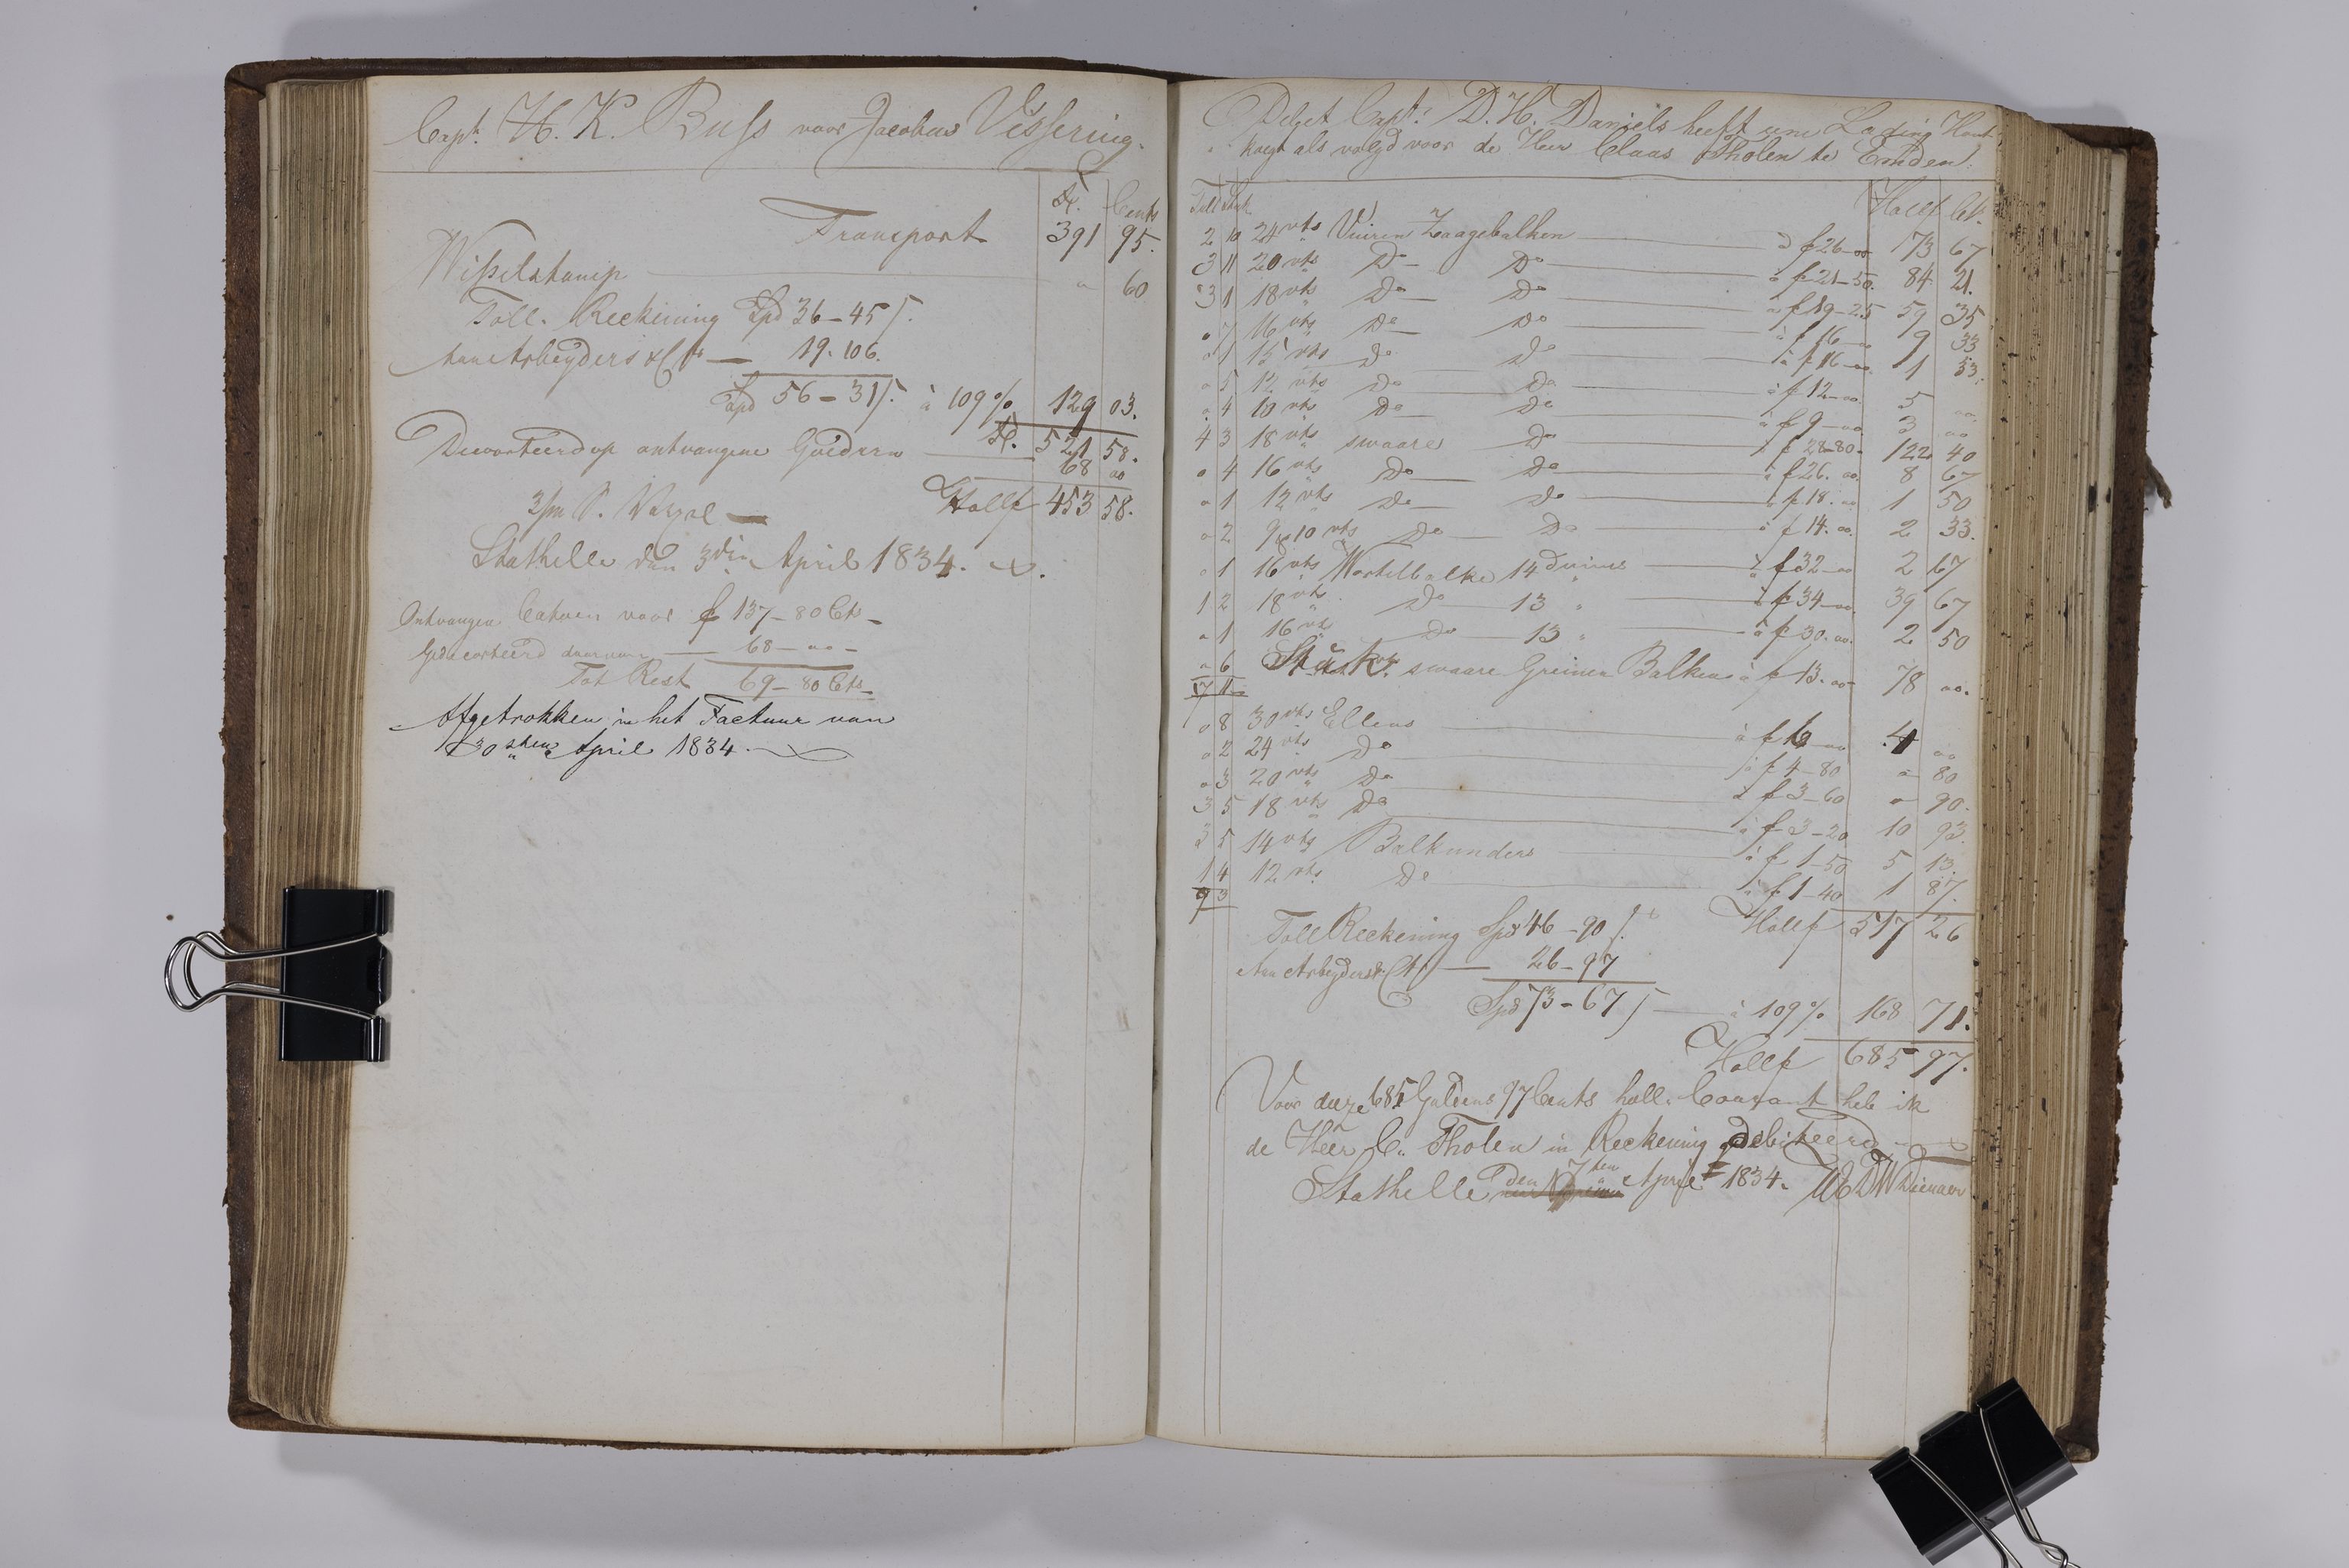 Capt. H. K. Buss voor Jacobus Vissering.
Fl. Cents
Transport 391 95.
Wisselstemp " 60
Toll. Reckening Spd 36-45 ſ.
Aan Arbeyders &Ct — 19.106.
Spd 56-31 ſ. à 109% 129 03.
Fl. 521 58.
Decorteerd op ontvangene Goederen — 68 00
Hollf 453 58.
Stathelle den 3den April 1834.
Ontvangen voor f 137-80 Cts
Gedecorteerd daarvan — 68-00-
Tot Rest 69-80 Cts
Afgetrokken in het Factuur van
30sten April 1834.
Delget Capt: D. H. Daniels heeft eene Lading Hout
koegt als volgd voor de Heer Claas Tholen te Emden.
Tult Stuk Hollf Ct.
2 10 24 vts Vuiren Zaagebalken à f 26-00 173 67
3 11 20 vts Do Do à f 21-50. 84 21.
3 1 18 vts Do Do à f 19-25 59 35
" 7 16 vts Do Do à f 16-00 9 33
" 1 15 vts Do Do à f 16-00 1 33.
" 5 12 vts Do Do à f 12-00 5 00
" 4 10 vts Do Do à f 9-00 3 00
4 3 18 vts swaare Do à f 28-80. 122 40
" 4 16 vts Do Do à f 26.00. 8 67
" 1 12 vts Do Do à f 18.00 1 50
" 2 9 à 10 vts Do Do à f 14.00. 2 33.
" 1 16 vts Wortelbalke 14 duims à f 32-00 2 67
1 2 18 vts Do 13 " à f 34-00. 39 67
" 1 16 vts Do 13 " à f 30.00. 2 50
" 6 Stúks swaare Greinen Balken à f 13.00 78 00.
17 11
" 8 30 vts Ellens à f 6-00 4 00
" 2 24 vts Do à f 4-80 " 80
" 3 20 vts Do à f 3-60 " 90.
3 5 18 vts Do à f 3-20 10 93.
3 5 14 vts Balkunders à f 1-50 5 13.
1 4 12 vts Do à f 1-40 1 87.
9 3
Hollf 517 26
Toll Reckening Spd 46-90 ſ.
Aan Arbeyders &Ct — 26-97
Spd 73-67 ſ — à 109% 168 71.
Hollf 685 97.
Voor deeze 685 Guldens 97 Cents holl. Courant heb ik
de Heer C. Tholen in Reckening gedebiteerd
Stathelle den 7ten April 1834.